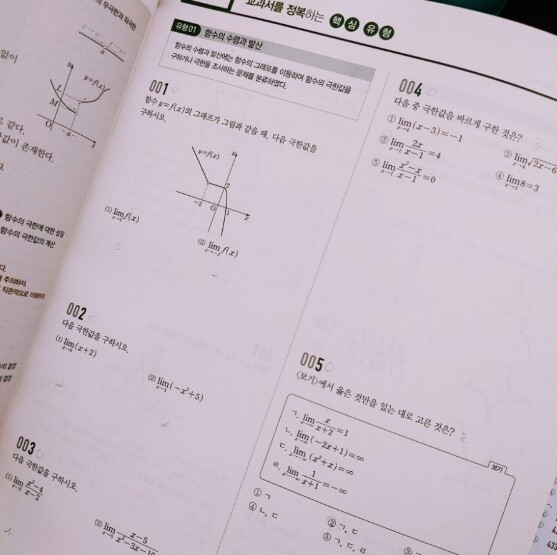 교과서를 정복하는 핵심유형
유형 01 함수의 수렴과 발산
함수의 수렴과 발산에는 함수의 그래프를 이용하여 함수의 극한값을
구하거나 극한을 조사하는 문제를 분류하였다.
001
함수 y=f(x)의 그래프가 그림과 같을 때, 다음 극한값을
구하시오.
y=f(x)
-2 O 1 x
2
(1) lim f(x)
(2) lim f(x)
002
다음 극한값을 구하시오.
(1) lim (x+2)
(2) lim (-x²+5)
003
다음 극한값을 구하시오.
(1) lim x²-4 / x-2
(2) lim x-5
004
다음 중 극한값을 바르게 구한 것은?
① lim (x-3)=-1
② lim √2x-6
③ lim 2x / x-1 =4
④ lim 8=3
⑤ lim x²-x / x-1 =0
005
<보기>에서 옳은 것만을 있는 대로 고른 것은?
보기
ㄱ. lim x / x+2 =1
ㄴ. lim (-2x+1)=∞
ㄷ. lim (x²+x)=∞
ㄹ. lim 1 / x+1 =-∞
① ㄱ
② ㄱ, ㄷ
④ ㄴ, ㄷ
⑤ ㄱ, ㄷ, ㄹ
y=f(x)
L
M
O a x
같다.
값이 존재한다.
함수의 극한에 대한 성질
함수의 극한값의 계산